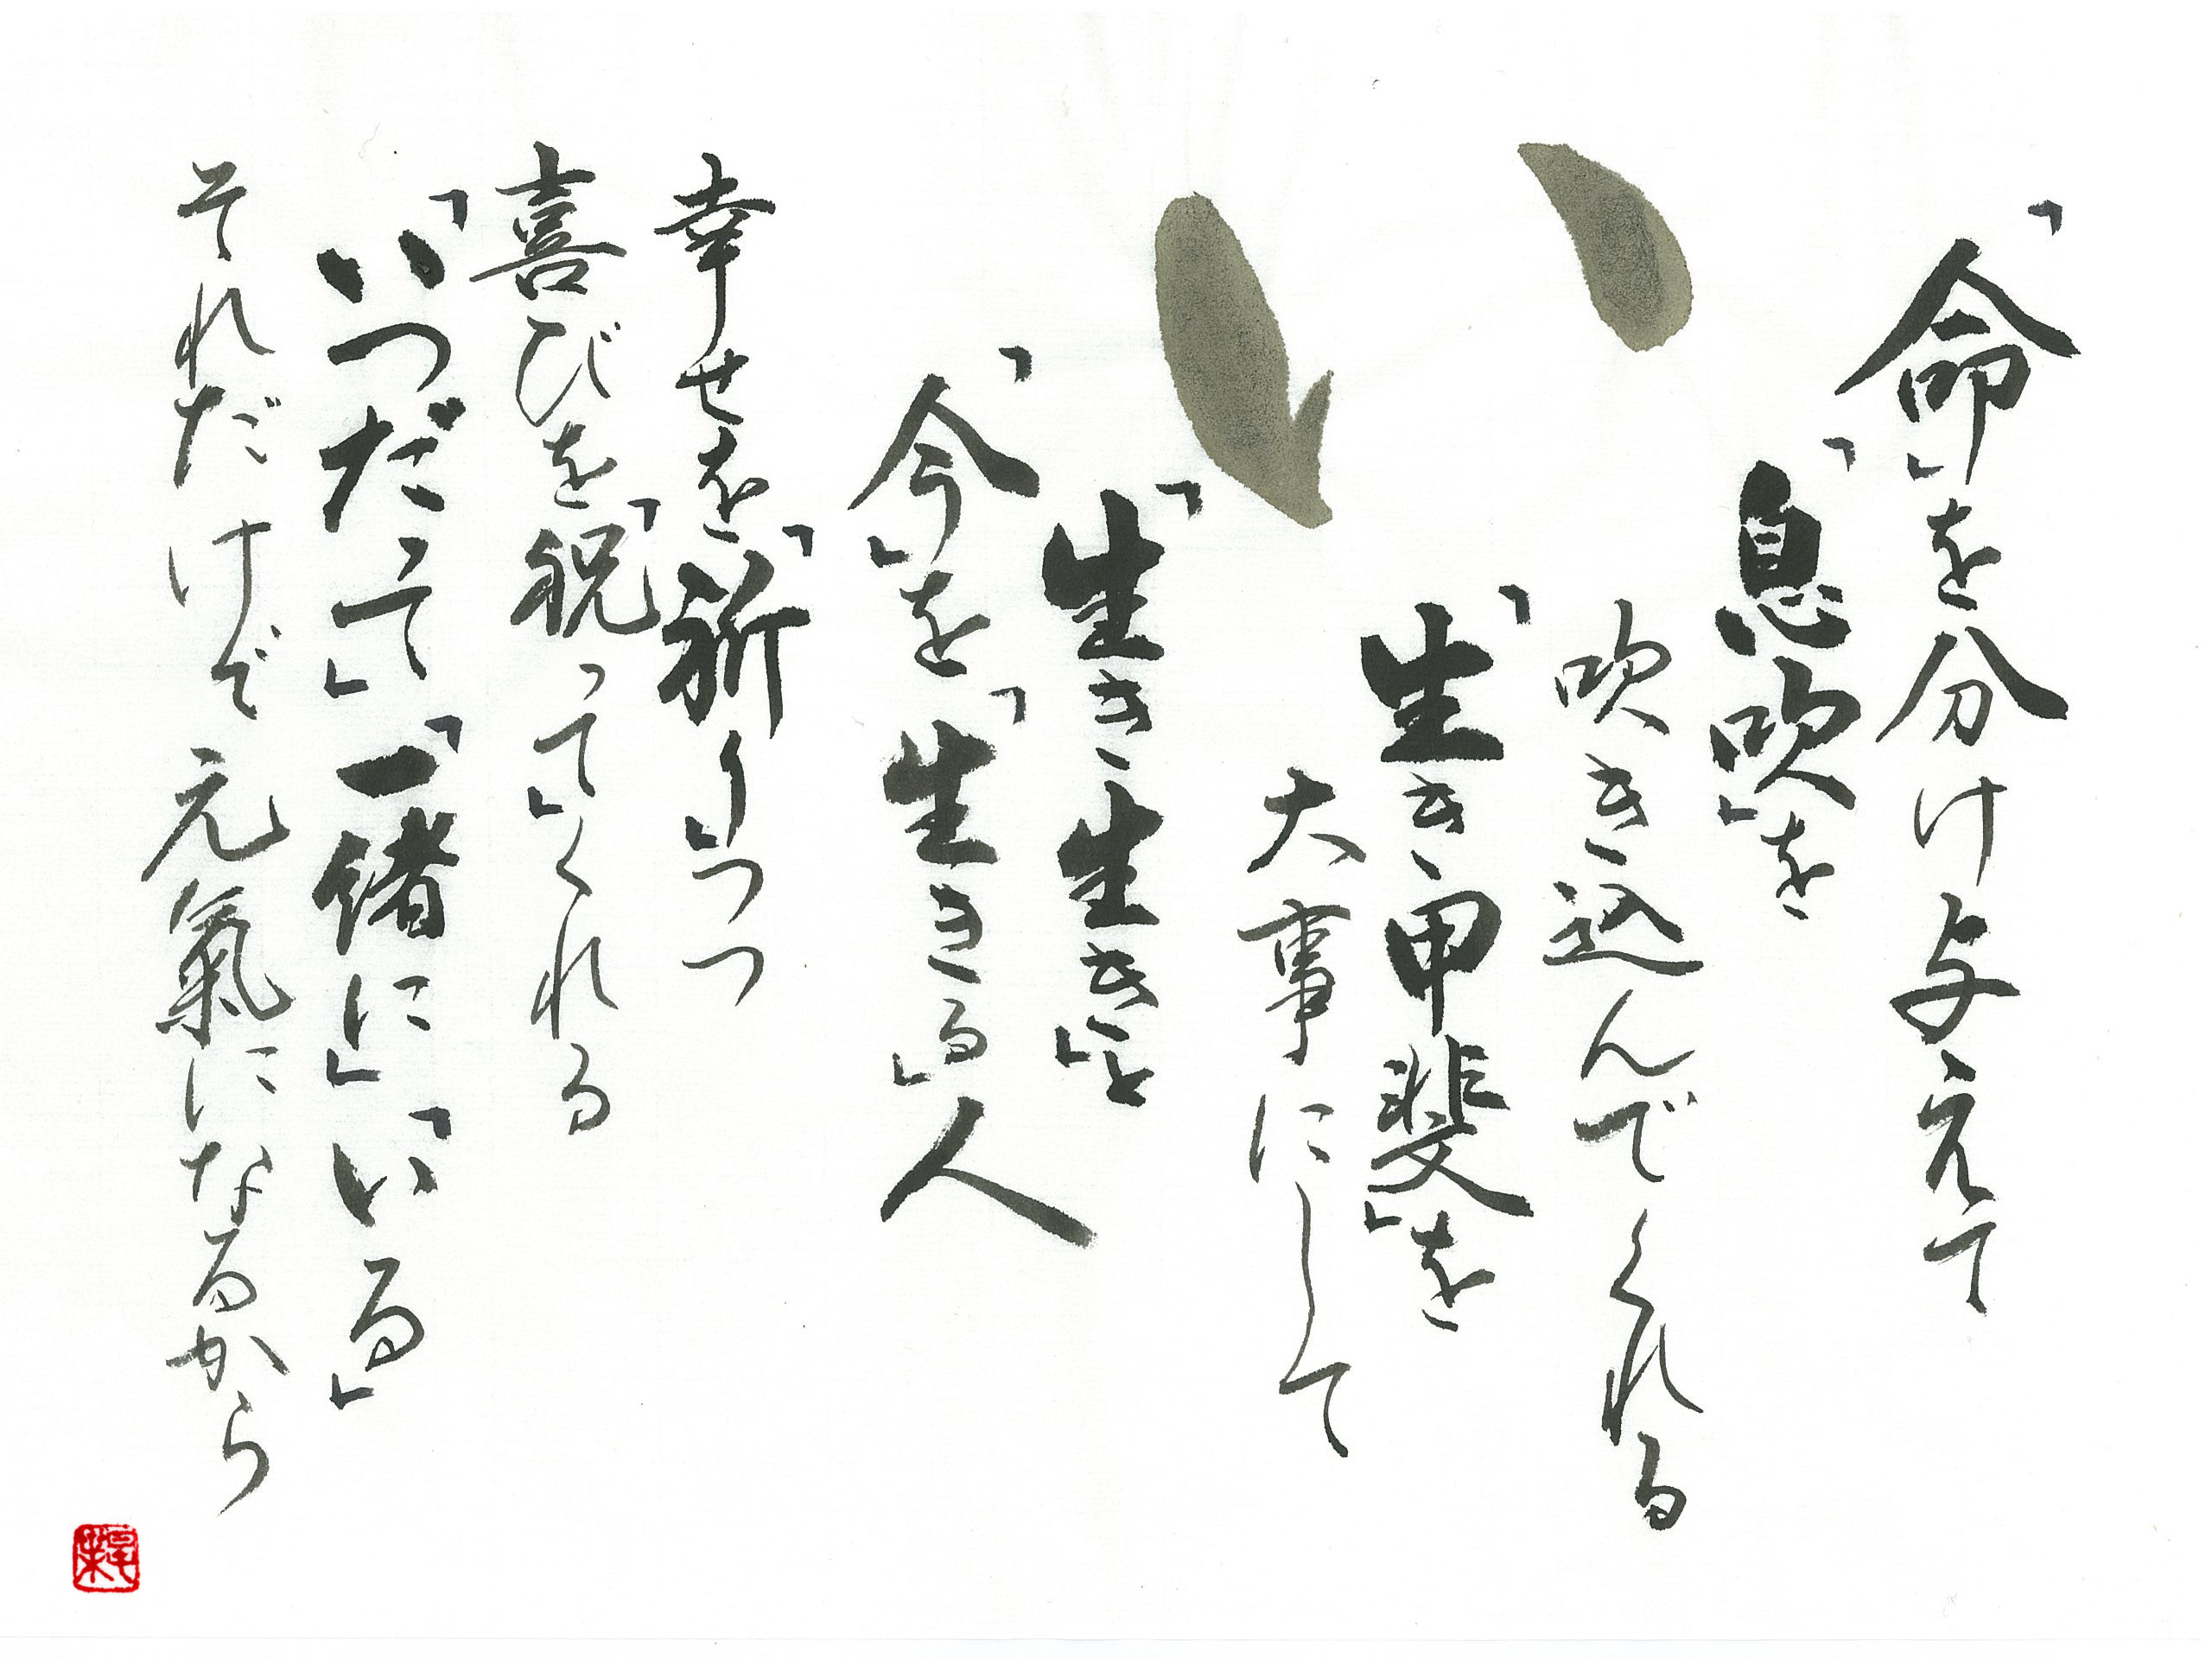 「命」を分け与えて
「息吹」を
吹き込んでくれる
「生き甲斐」を
大事にして
「生き生き」と
「今」を「生きる」人
幸せを「祈り」つつ
喜びを「祝って」くれる
「いつだって」「一緒に」「いる」
それだけで元氣になるから